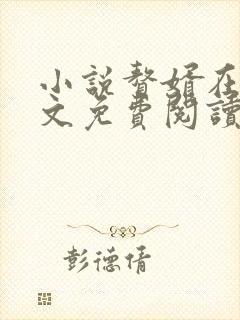 小説贅婿在
文免費閱讀
彭德倩